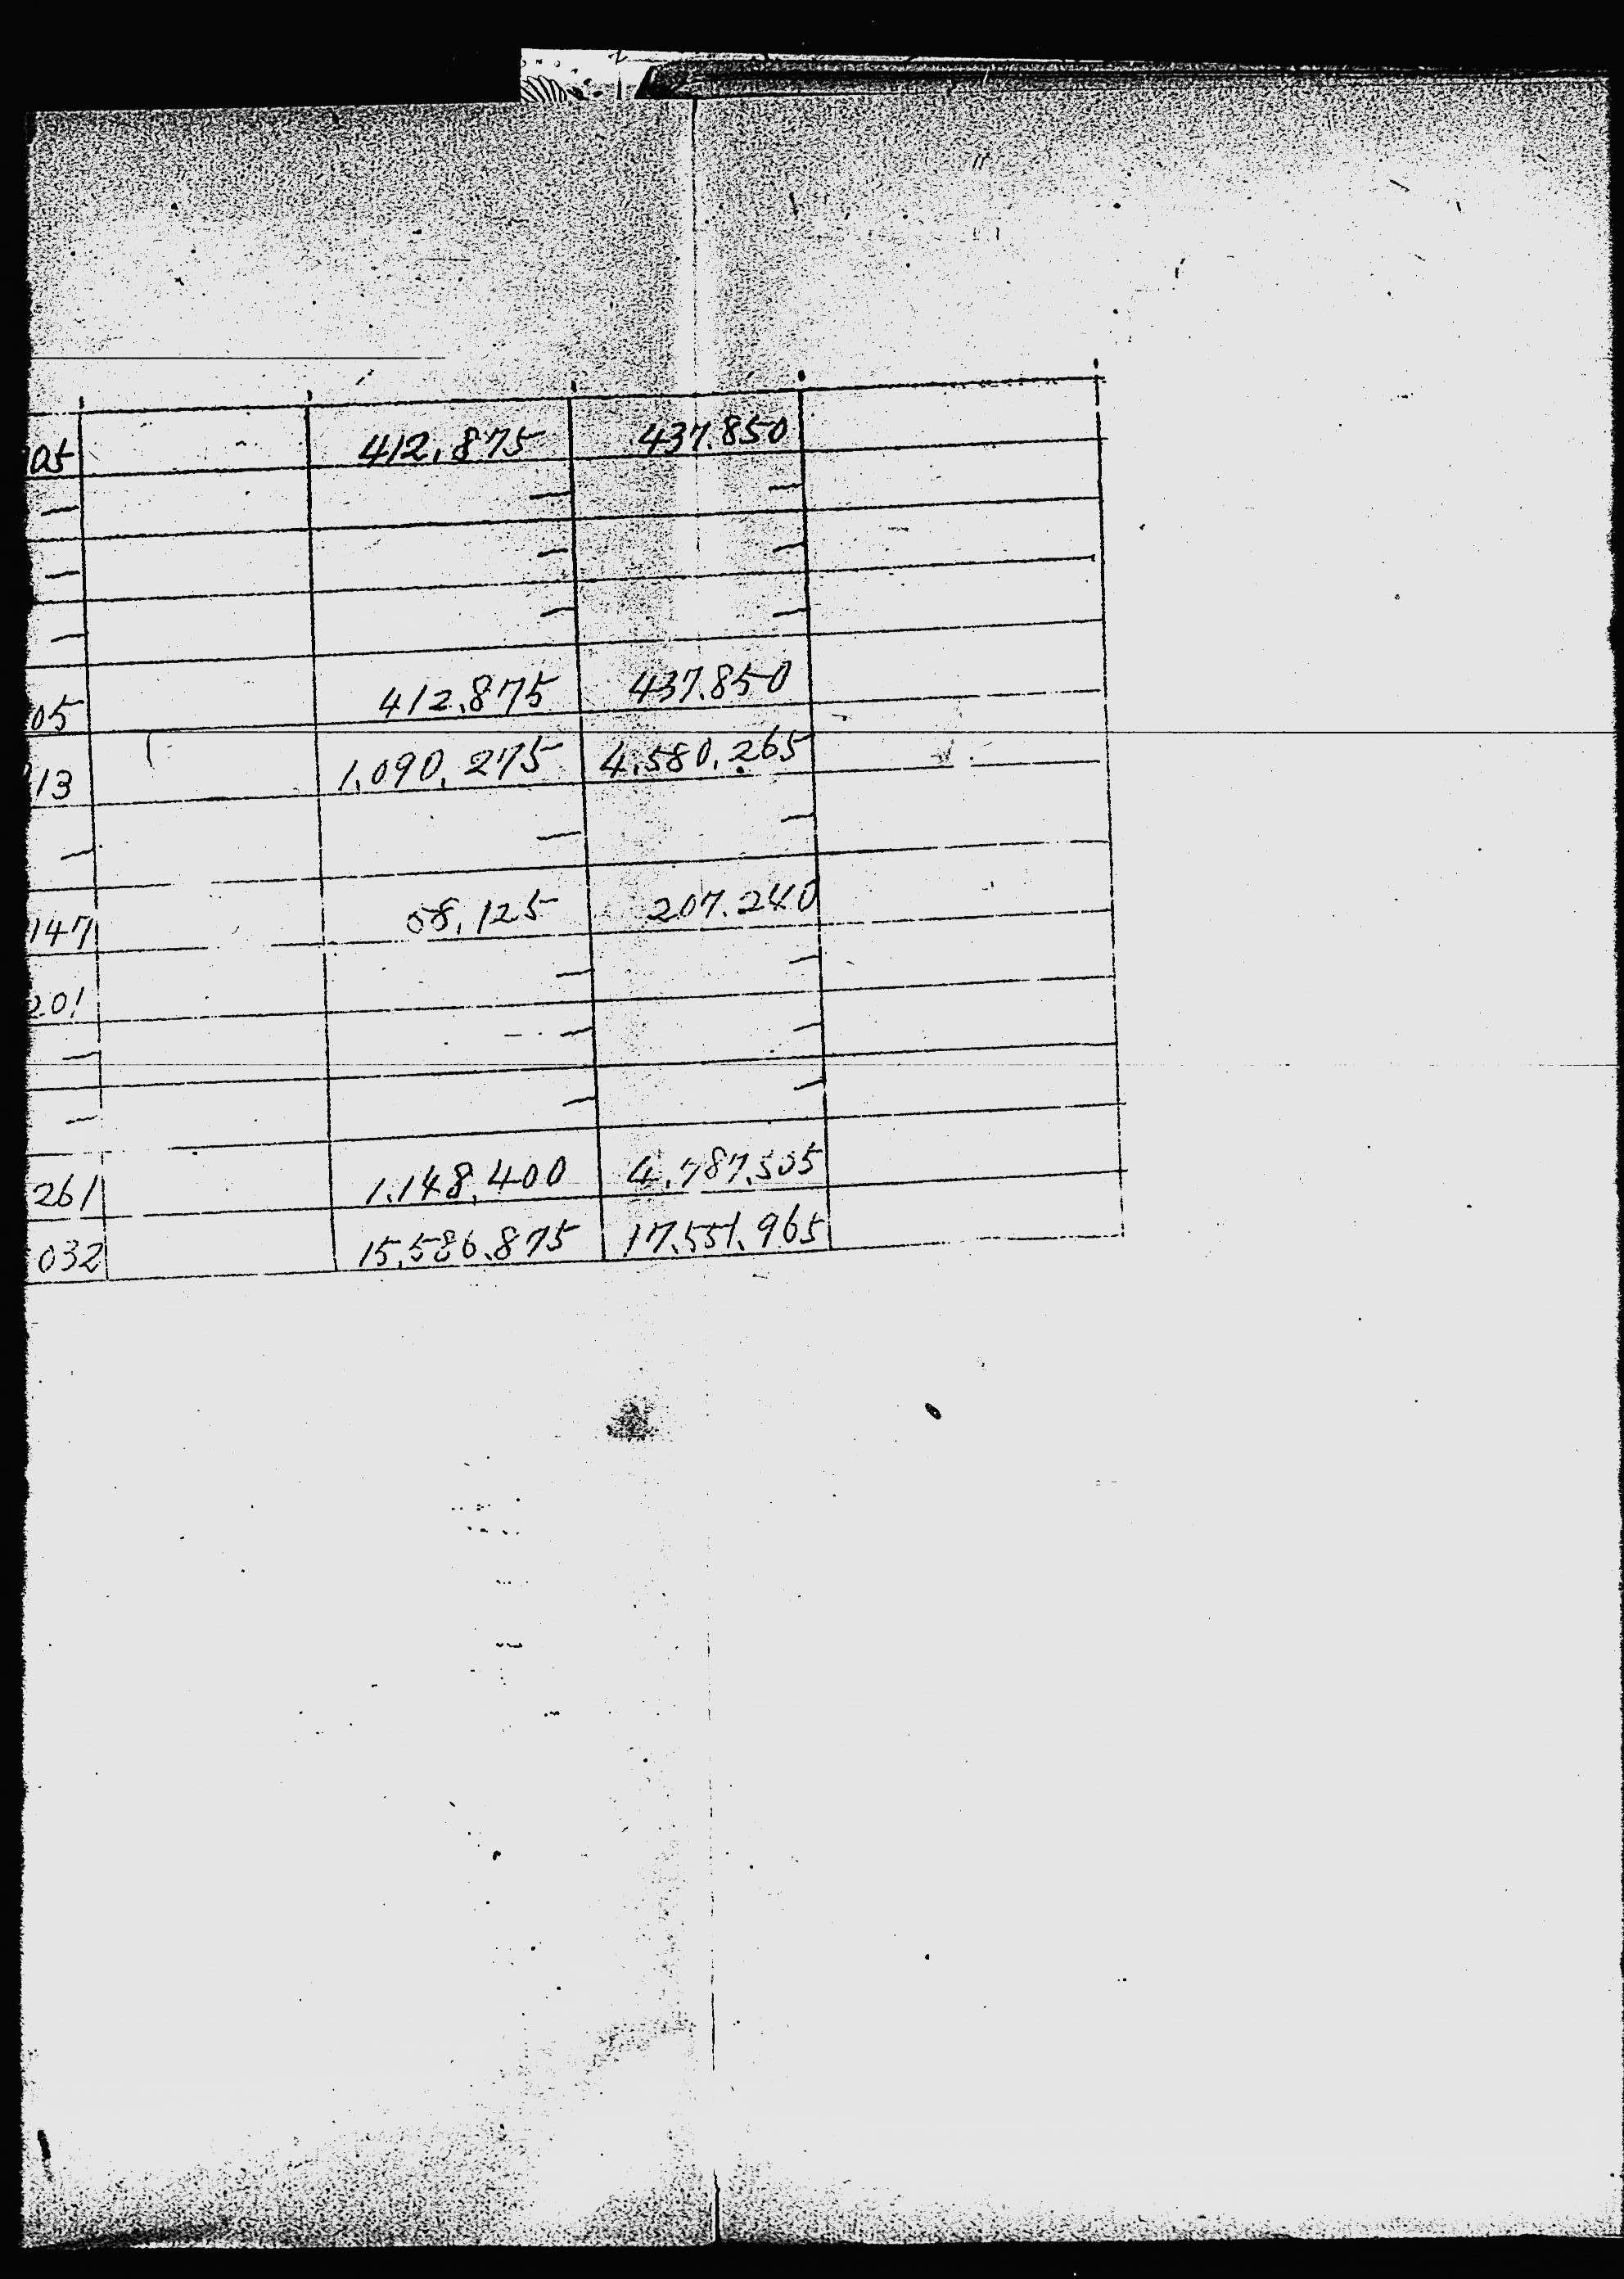 05 412.875 437.850
— — —
— — —
— — —
05 412.875 437.850
13 1.090.275 4.580.265
— — —
147 58.125 207.240
201 — —
— — —
— — —
261 1.148.400 4.787.505
032 15.586.875 17.551.965